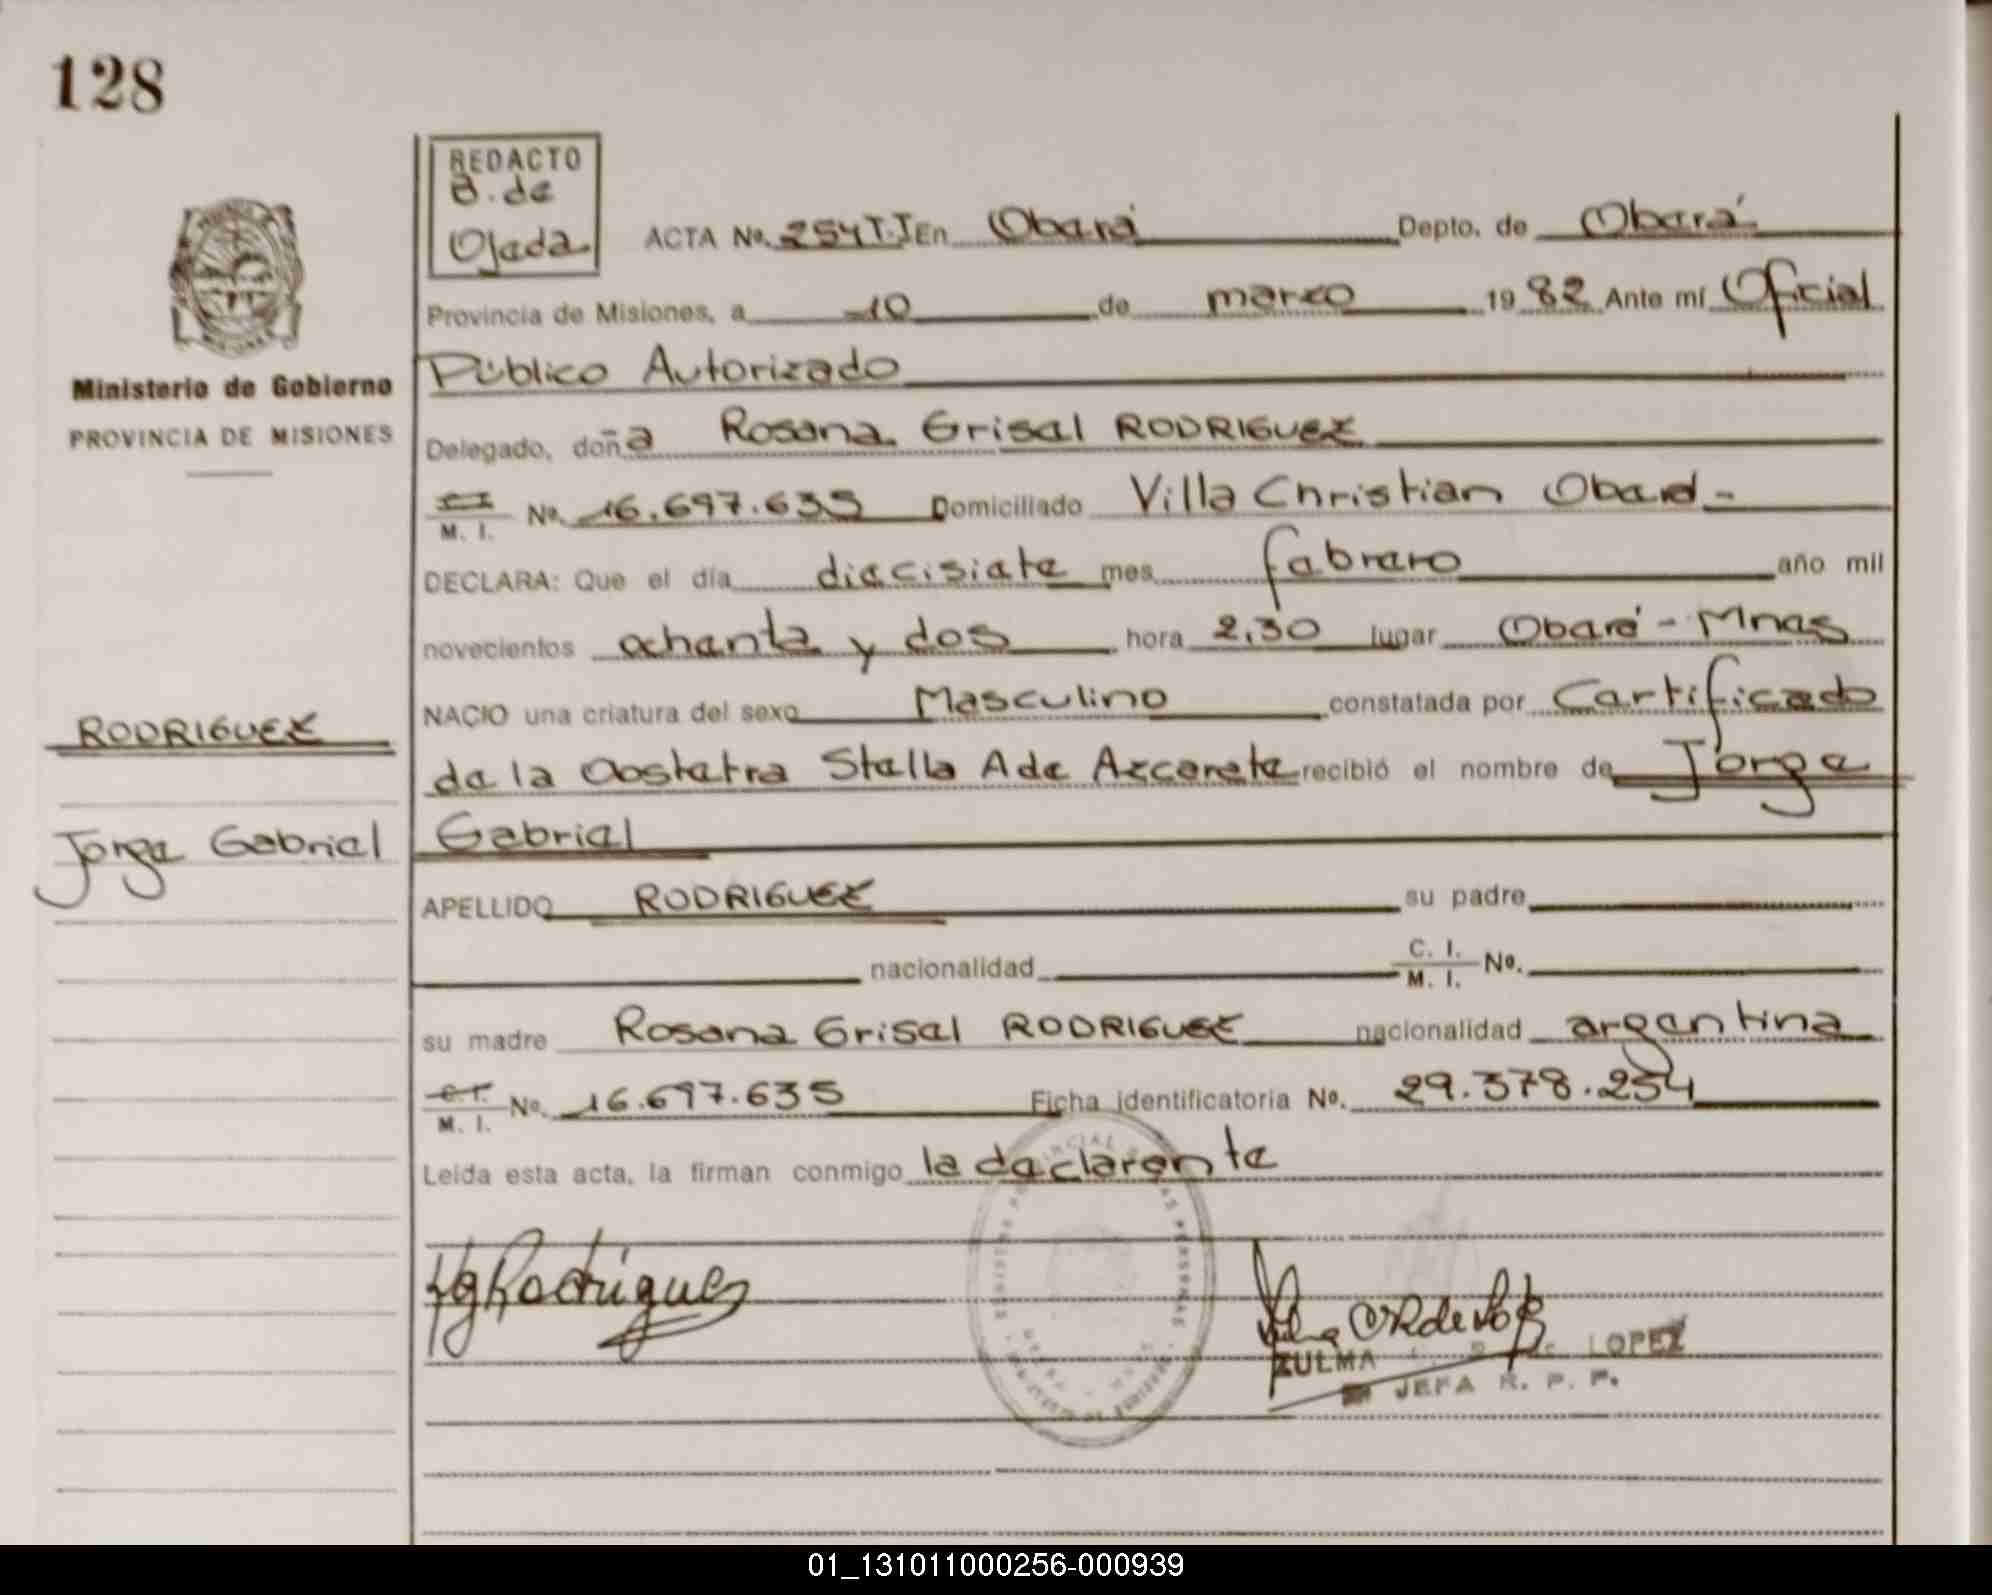 128
REDACTO
B. de
Ojeda
ACTA Nº. 254 T.I En Oberá Depto. de Oberá
Provincia de Misiones, a 10 de marzo 19 82 Ante mí Oficial
Público Autorizado
Ministerio de Gobierno
PROVINCIA DE MISIONES
Delegado, doña Rosana Grisel RODRIGUEZ
C.I.
M. I. Nº. 16.697.635 Domiciliado Villa Christian Oberá -
DECLARA: Que el día diecisiete mes febrero año mil
novecientos ochenta y dos hora 2,30 lugar Oberá - Mnes
NACIO una criatura del sexo Masculino constatada por Certificado
RODRIGUEZ
de la Obstetra Stella Ade Azcarate recibió el nombre de Jorge
Jorge Gabriel
Gabriel
APELLIDO RODRIGUEZ su padre
nacionalidad C. I.
M. I. Nº.
su madre Rosana Grisel RODRIGUEZ nacionalidad argentina
C.I.
M. I. Nº. 16.697.635 Ficha identificatoria Nº. 29.378.254
Leída esta acta, la firman conmigo la declarente
Rodriguez
ZULMA LOPEZ
JEFA R. P. P.
01_131011000256-000939